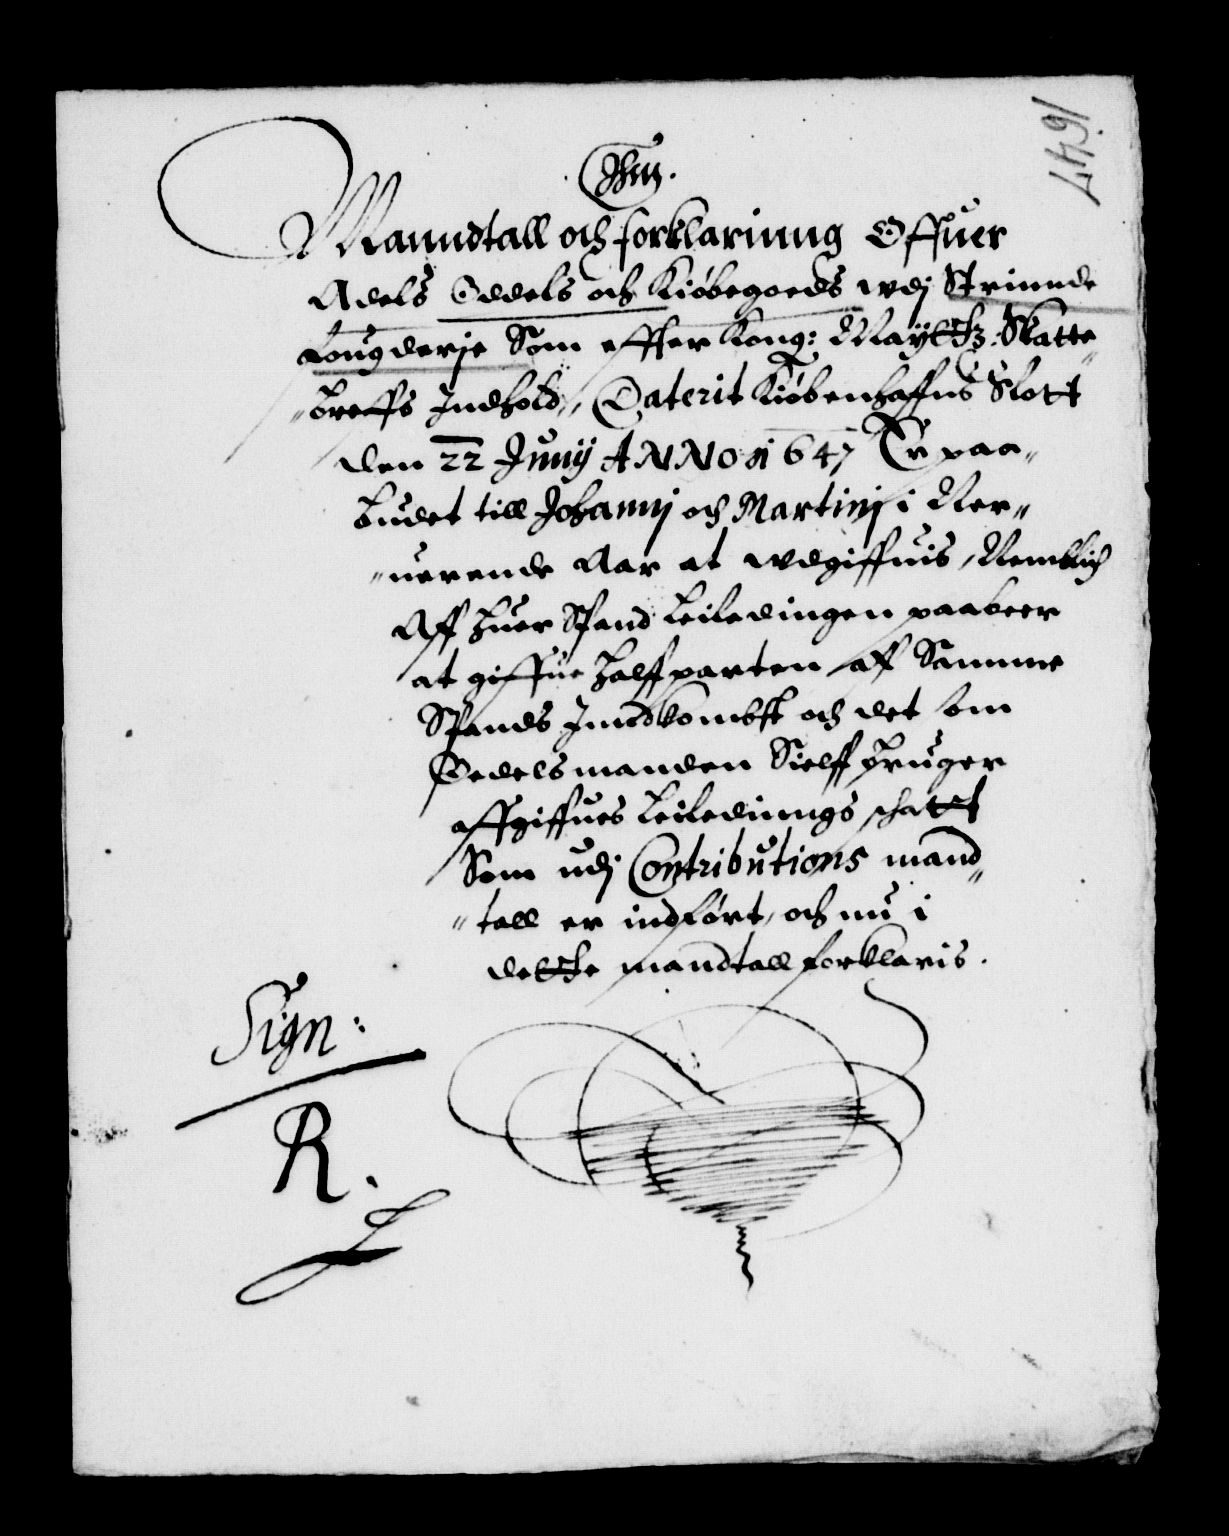 1647
Jhm.
Manndtall och forklariung Offuer
Adels Oddels och Kiøbegoeds wdj Strinnde
Lougderje Som effter Kong: Maÿttz: Skatte„
„breffs Indhold, Daterit Kiøbenhaffns Slott
den 22 Junij ANNO 1647 Er paa„
budet till Johannj och Martinj i Ner„
„uerende Aar at wdgiffuis, Nemblich
Aff huer Spand Leiledingen paabeer
at giffue halffparten aff Samme
Spands Jnndkombst och det som
Oedelsmanden Sielff bruger
affgiffues Leiledinngs schatt
Som udj Contributions mand„
„tall er indført, och nu i
dette mandtall forklaris.
Sign:
R.